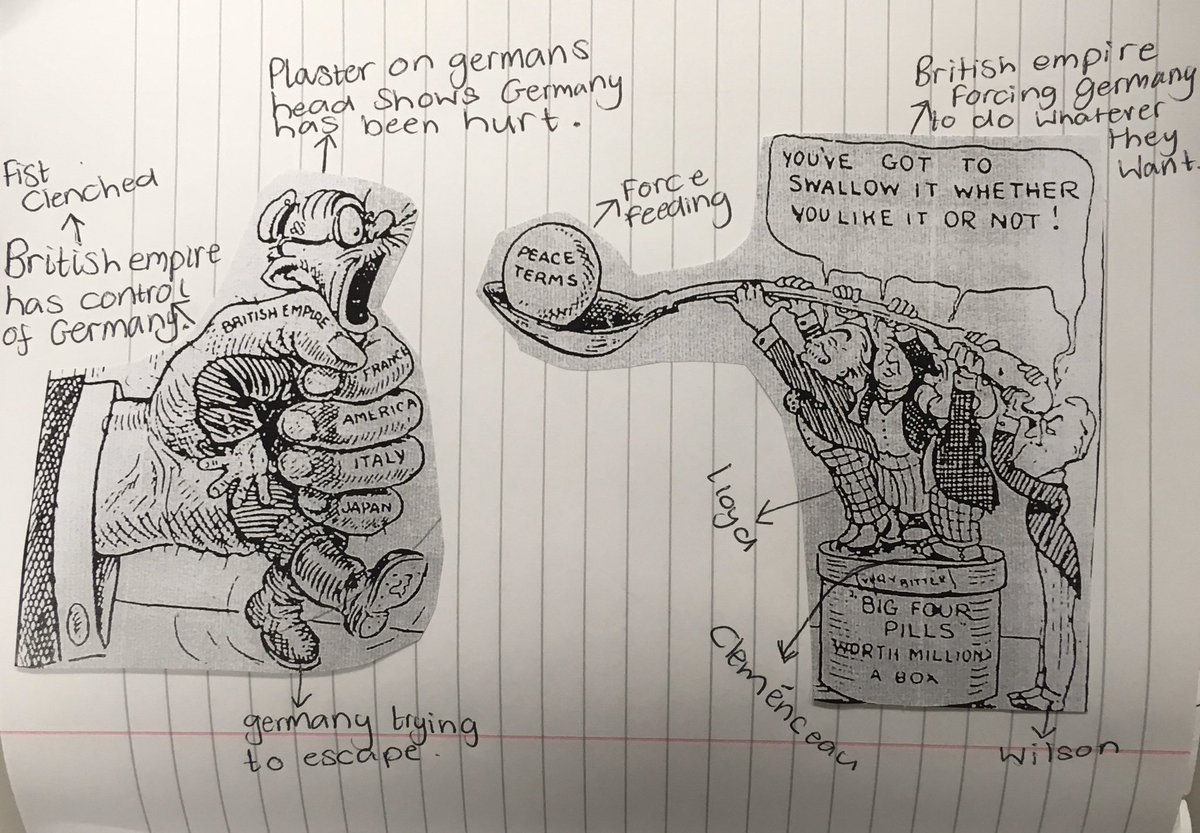 Plaster on germans
head shows Germany
has been hurt.
Fist
Clenched
British empire
has control
of Germany.
Force
feeding
British empire
forcing germany
to do whatever
they
want.
YOU'VE GOT TO
SWALLOW IT WHETHER
YOU LIKE IT OR NOT!
PEACE
TERMS
BRITISH EMPIRE
FRANCE
AMERICA
ITALY
JAPAN
Lloyd
Cleménceau
Wilson
(VERY BITTER)
"BIG FOUR
PILLS"
WORTH MILLIONS
A BOX
germany trying
to escape.